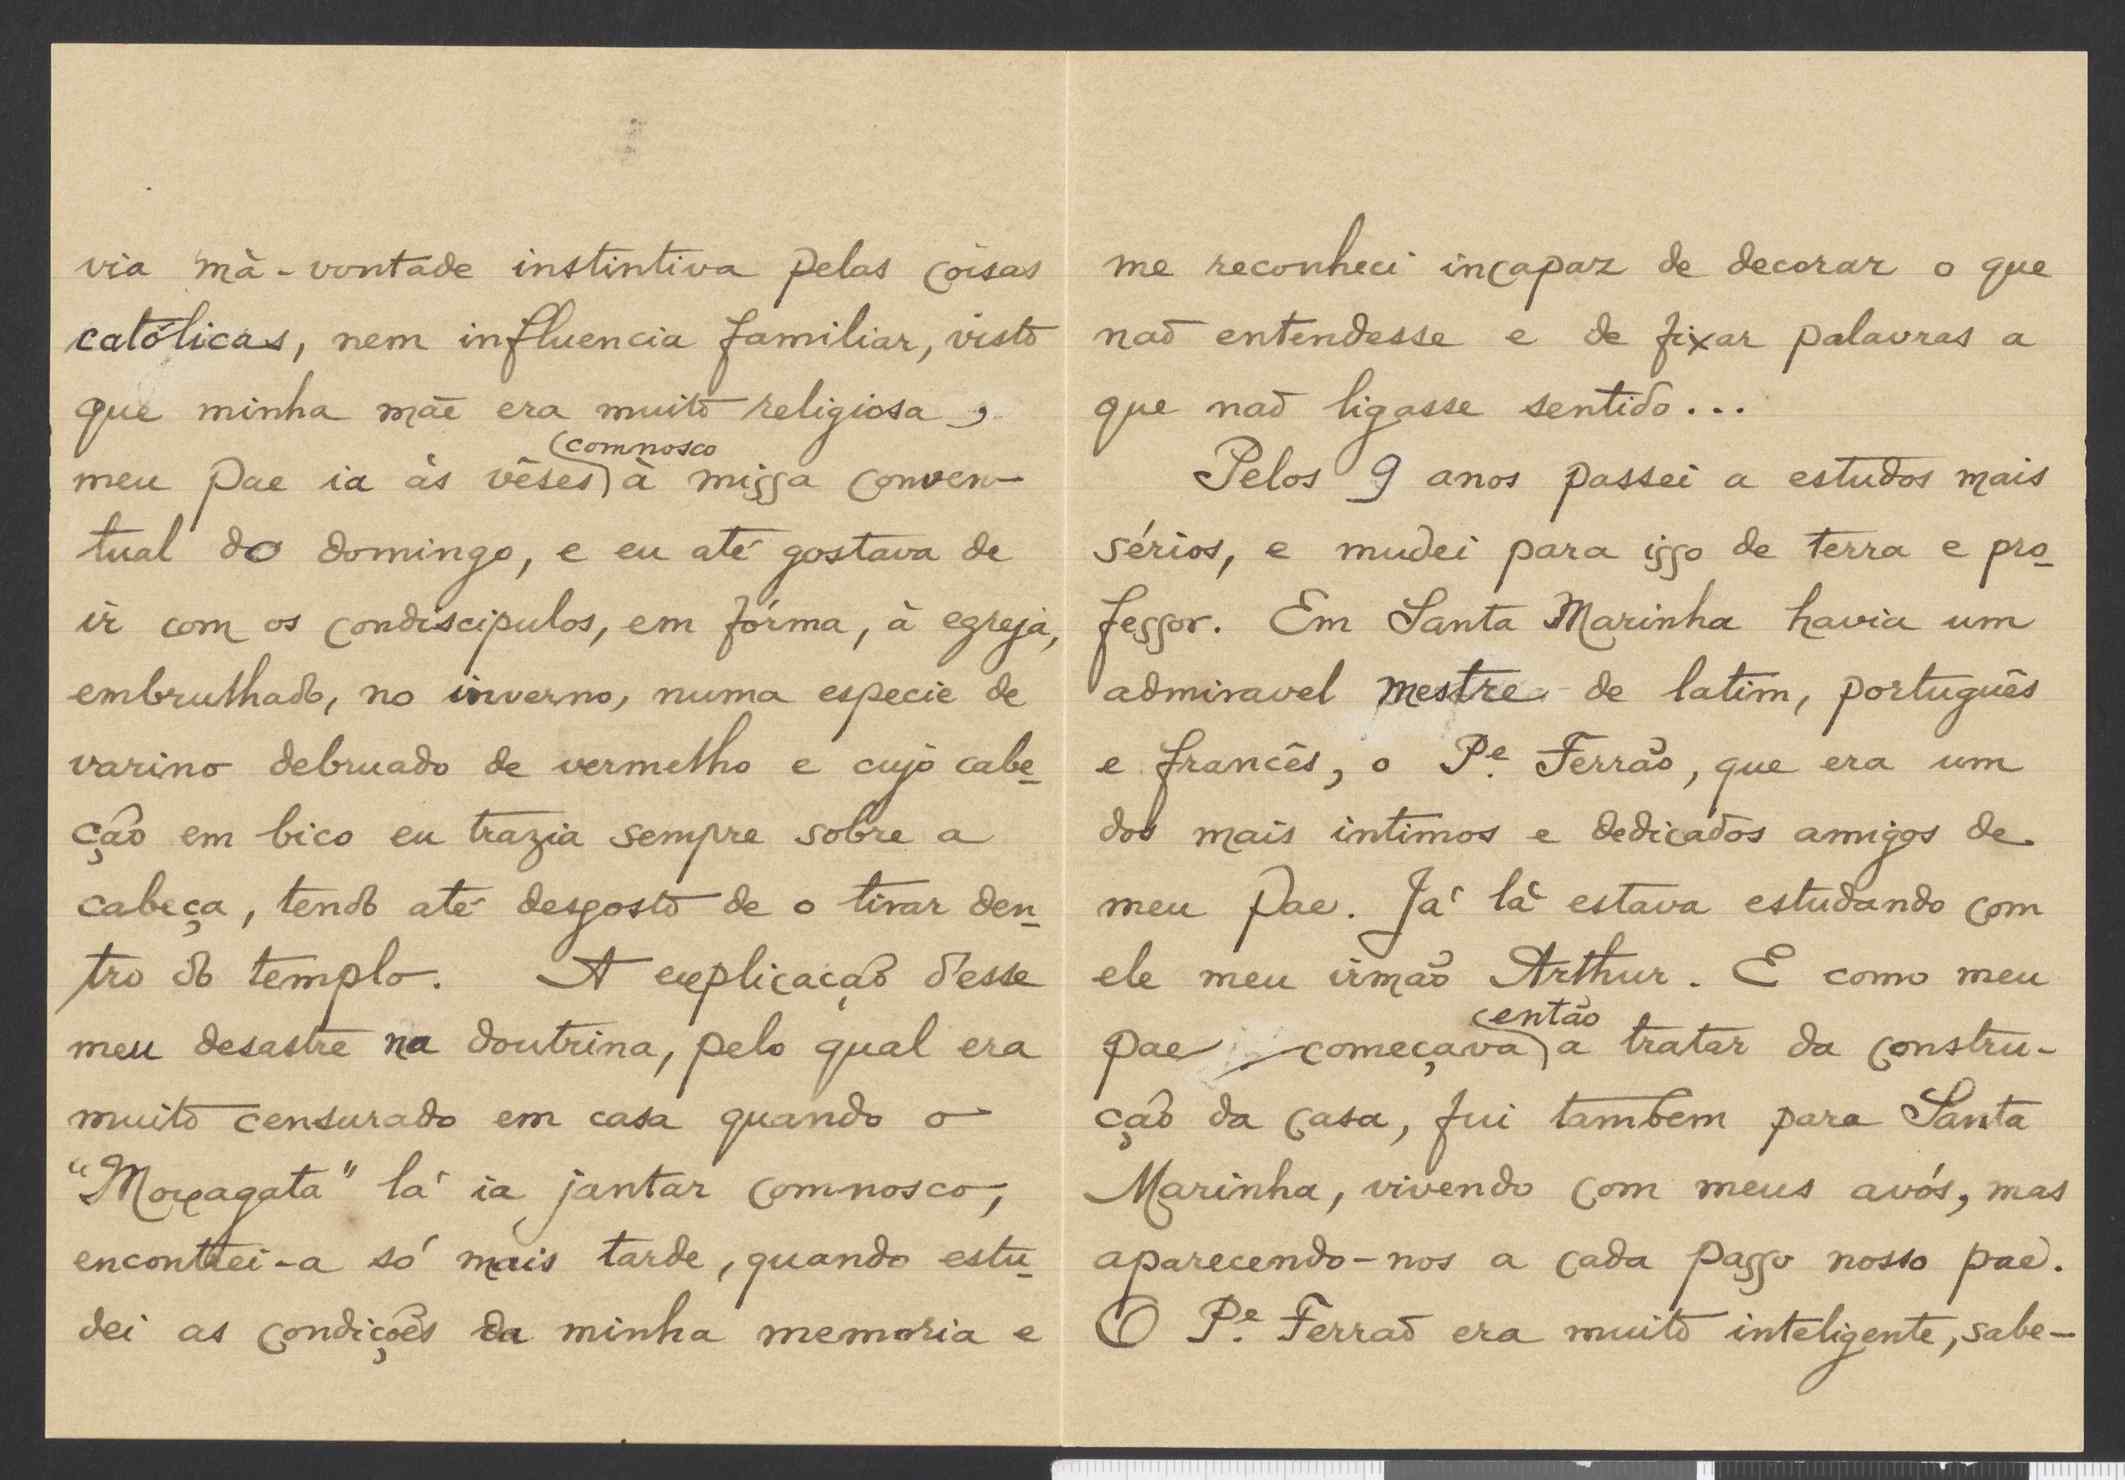 via má-vontade instintiva pelas coisas
católicas, nem influencia familiar, visto
que minha mãe era muito religiosa,
comnosco
meu pae ia ás vêses à missa conven-
tual do domingo, e eu até gostava de
ir com os condiscipulos, em fórma, à egreja,
embrulhado, no inverno, numa especie de
varino debruado de vermelho e cujo cabe-
ção em bico eu trazia sempre sobre a
cabeça, tendo até desgosto de o tirar den-
tro do templo. A explicação d'esse
meu desastre na doutrina, pelo qual era
muito censurado em casa quando o
"Moxagata" lá ia jantar comnosco,
encontrei-a só mais tarde, quando estu-
dei as condições da minha memoria e
me reconheci incapaz de decorar o que
não entendesse e de fixar palavras a
que não ligasse sentido...
Pelos 9 anos passei a estudos mais
sérios, e mudei para isso de terra e pro-
fessor. Em Santa Marinha havia um
admiravel mestre de latim, português
e francês, o Pe. Ferrão, que era um
dos mais intimos e dedicados amigos de
meu pae. Já lá estava estudando com
ele meu irmão Arthur. E como meu
então
pae começava a tratar da constru-
ção da casa, fui tambem para Santa
Marinha, vivendo com meus avós, mas
aparecendo-nos a cada passo nosso pae.
O Pe. Ferrão era muito inteligente, sabe-